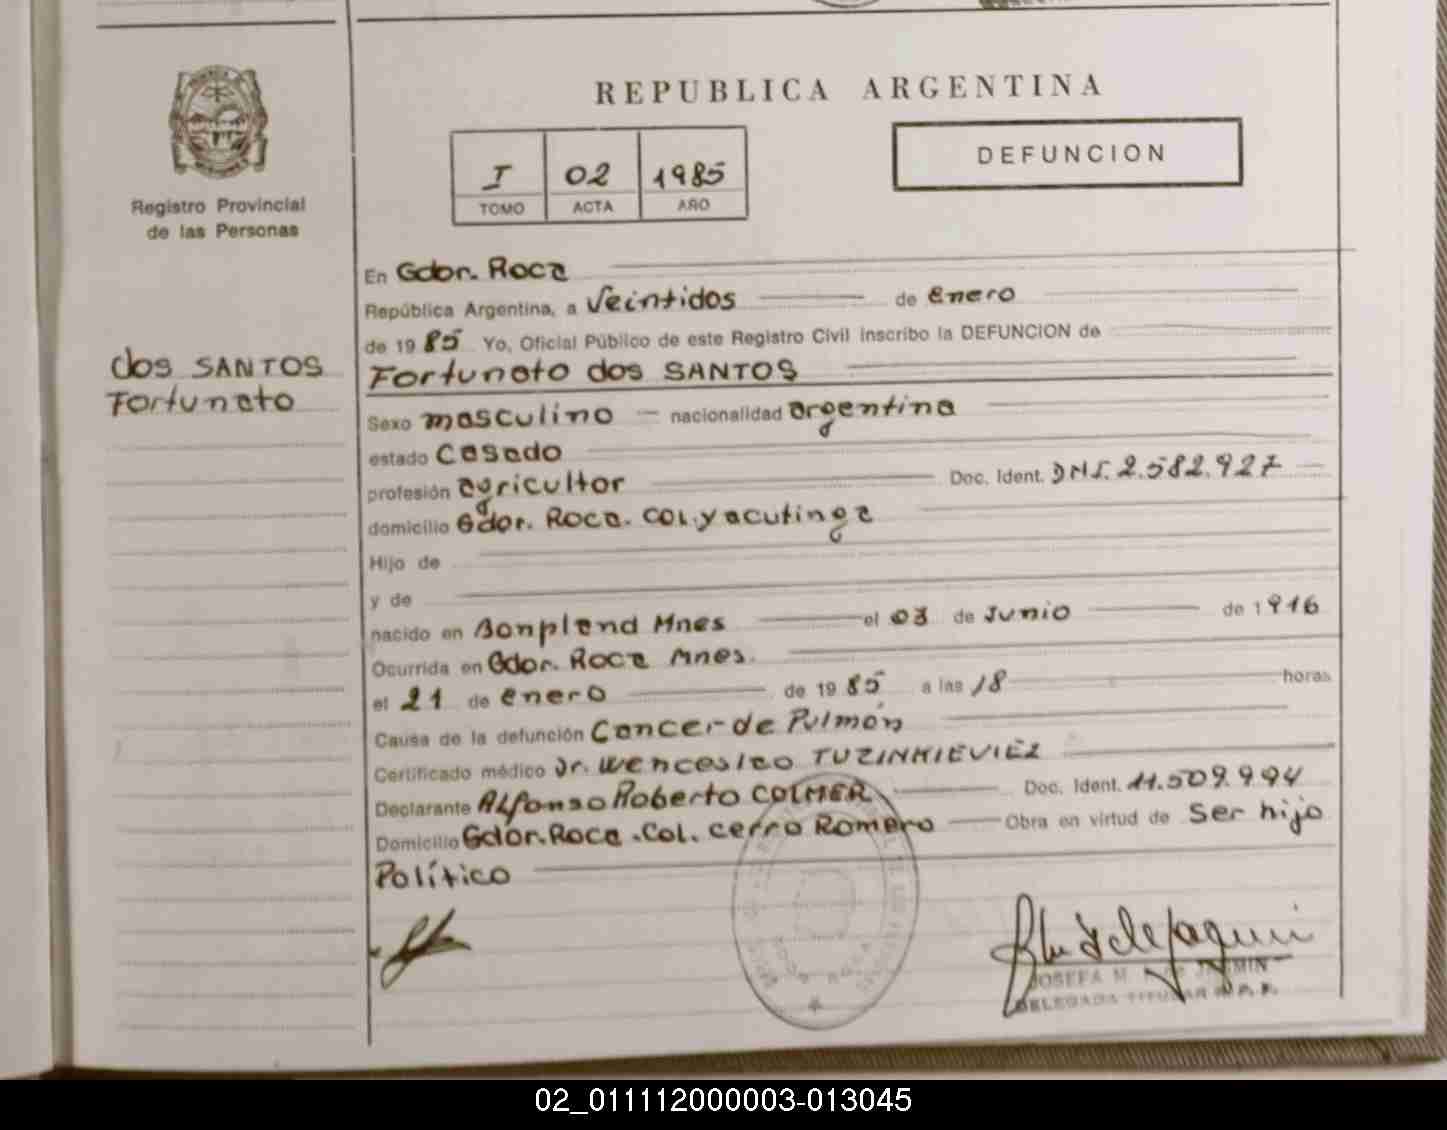 REPUBLICA ARGENTINA
I 02 1985
TOMO ACTA AÑO
DEFUNCION
Registro Provincial
de las Personas
dos SANTOS
Fortunato
En Gdor. Roca
República Argentina, a Veintidos de enero
de 1985 Yo, Oficial Público de este Registro Civil inscribo la DEFUNCION de
Fortunato dos SANTOS
Sexo masculino nacionalidad argentina
estado Casado
profesión agricultor Doc. Ident. DNI. 2.582.927
domicilio Gdor. Roca. COL. yacutinga
Hijo de
y de
nacido en Bonpland Mnes el 03 de Junio de 1916
Ocurrida en Gdor. Roca Mnes.
el 21 de enero de 1985 a las 18 horas
Causa de la defunción Cancer de Pulmón
Certificado médico Dr. Wenceslao TUZINKIEVIEZ
Declarante Alfonso Roberto COLMER Doc. Ident. 11.509.994
Domicilio Gdor. Roca. Col. cerro Romero Obra en virtud de Ser hijo
Político
JOSEFA M.
DELEGADA TITULAR R. P. P.
02_011112000003-013045